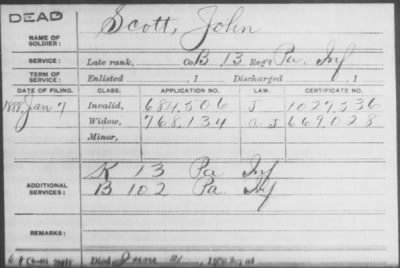 DEAD
NAME OF SOLDIER: Scott, John
SERVICE: Late rank, Co. B 13 Reg't Pa. Inf
TERM OF SERVICE: Enlisted , 1 Discharged , 1
DATE OF FILING. CLASS. APPLICATION NO. LAW. CERTIFICATE NO.
1888 Jan 7 Invalid, 684,506 J 1027,336
Widow, 768,134 a J 669,028
Minor,
ADDITIONAL SERVICES: K 13 Pa Inf
B 102 Pa Inf
REMARKS:
Died at